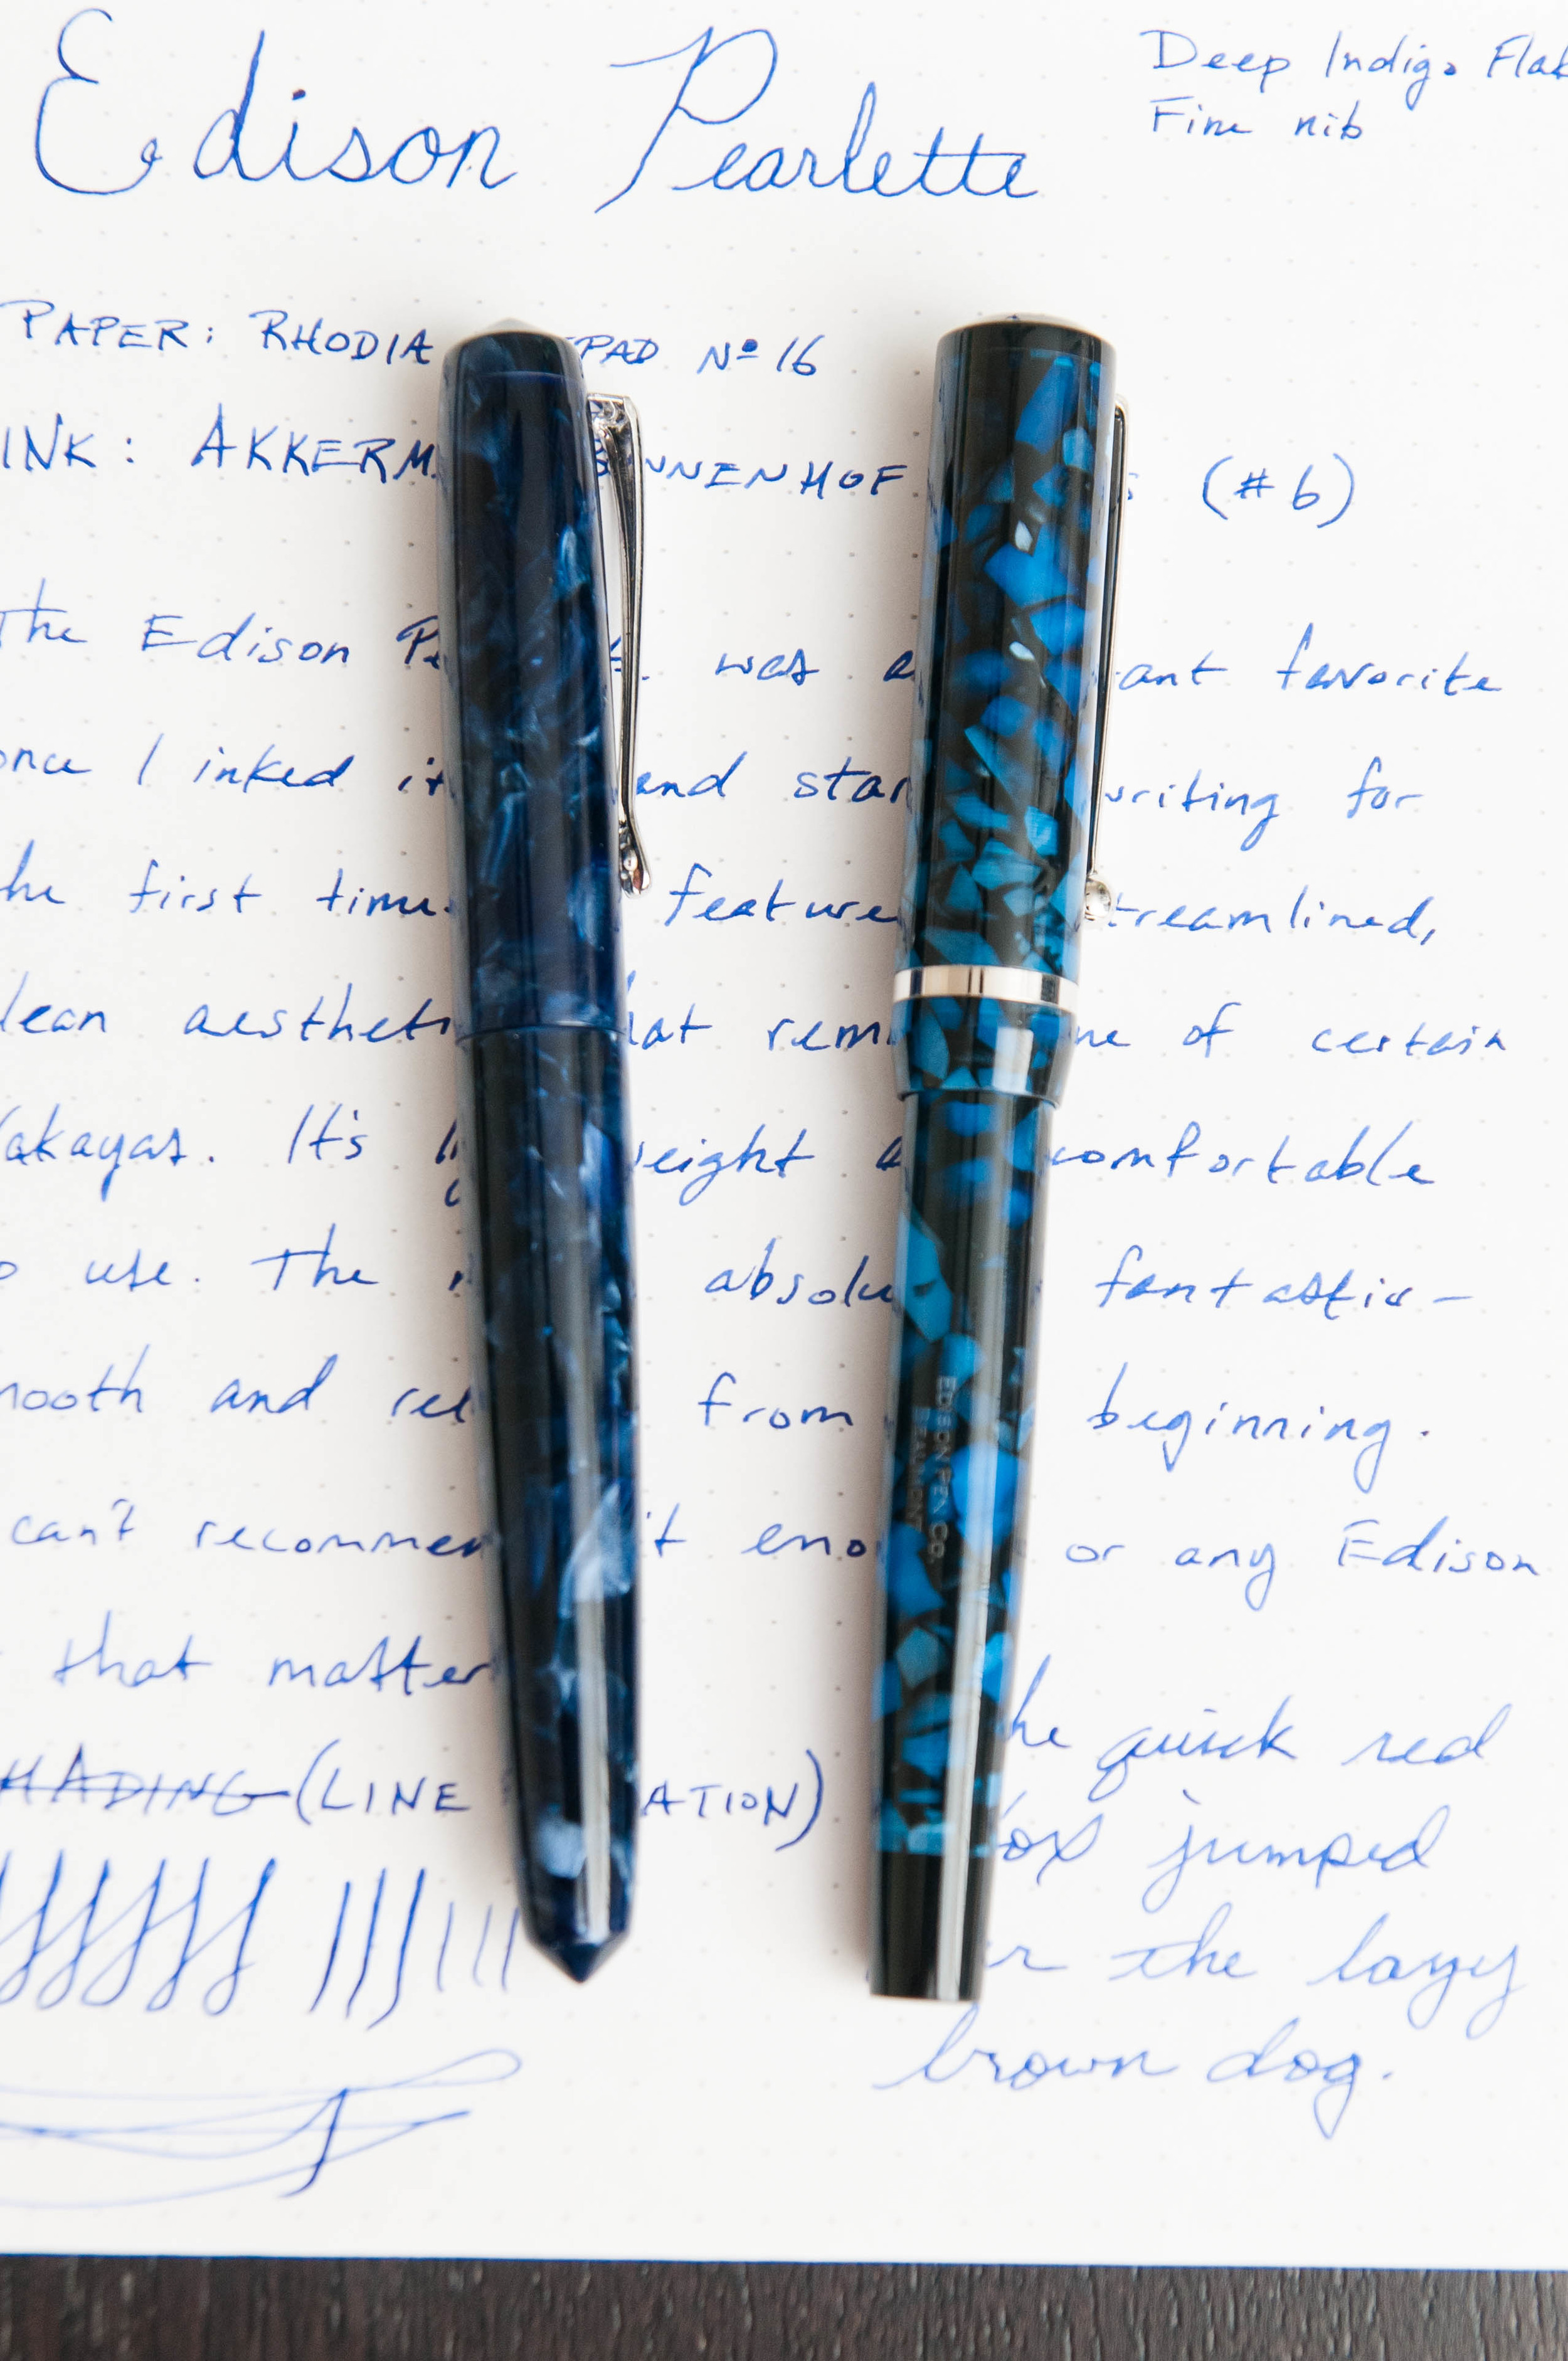 Edison Pearlette
Deep Indigo Flak
Fine nib
PAPER: RHODIA PAD Nº 16
INK: AKKERM NNENHOF s (#6)
The Edison Pe was a ant favorite
once I inked it and star writing for
he first time. feature treamlined,
lean aesthet hat rem me of certain
akayas. It's l eight a comfortable
o use. The absolu fantastic –
mooth and rel from beginning.
can't recommen it eno or any Edison
that matter
HADING (LINE ATION)
he quick red
ox jumped
er the lazy
brown dog.
EDISON PEN CO.
BEAUMONT